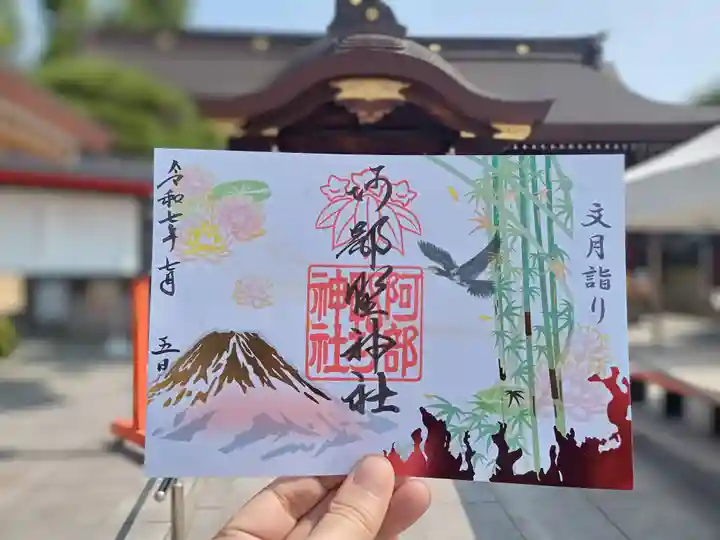 文月詣り
阿部野神社
阿部野神社
令和七年七月五日